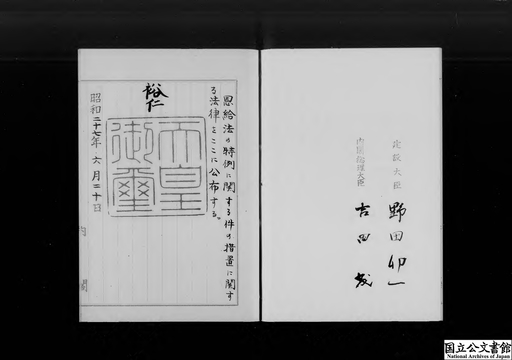 建設大臣 野田卯一
内閣総理大臣 吉田茂
恩給法の特例に関する件の措置に関す
る法律をここに公布する。
裕仁
天皇御璽
昭和二十七年六月三十日
内閣
国立公文書館
National Archives of Japan